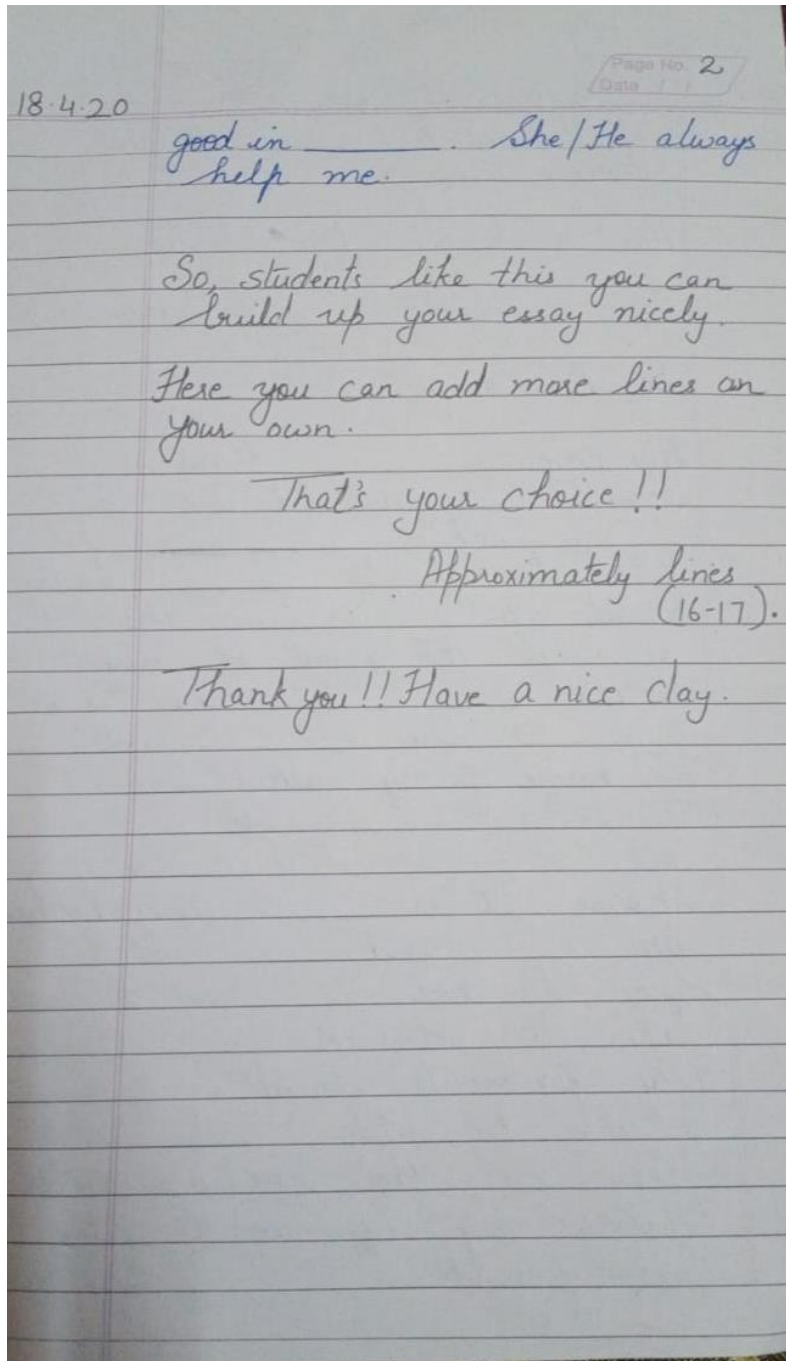 Page No. 2
Date / /
18.4.20
good in ______. She/He always
help me.
So, students like this you can
build up your essay nicely.
Here you can add more lines on
your own.
That's your choice!!
Approximately lines
(16-17).
Thank you!! Have a nice day.